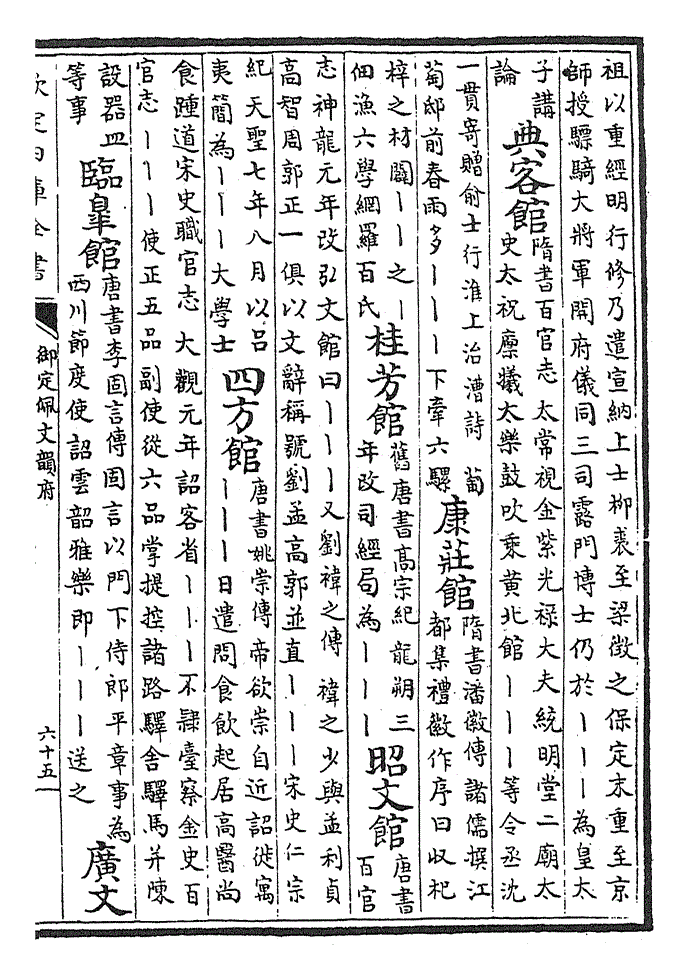 祖以重經明行修乃遣宣納上士柳裘至梁徵之保定末重至京
師授驃騎大將軍開府儀同三司露門博士仍於｜｜｜為皇太
子講
論
典客館
隋書百官志太常視金紫光祿大夫統明堂二廟太
史太祝廩犧大樂鼓吹乘黃北館｜｜｜等令丞沈
一貫寄贈俞士行淮上治漕詩 萄
萄邸前春雨多｜｜｜下牽六騾
康莊館
隋書潘徽傳諸儒撰江
都集禮徽作序曰收杞
梓之材闢｜｜之｜
佃漁六學網羅百氏
桂芳館
舊唐書高宗紀龍朔三
年改司經局為｜｜｜
昭文館
唐書
百官
志神龍元年改弘文館曰｜｜｜又劉禕之傳 禕之少與孟利貞
高智周郭正一俱以文辭稱號劉孟高郭並直｜｜｜宋史仁宗
紀 天聖七年八月以呂
夷簡為｜｜｜大學士
四方館
唐書姚崇傳帝欲崇自近詔徙寓
｜｜｜日遣問食飲起居高醫尚
食踵道宋史職官志 大觀元年詔客省｜｜｜不隸臺察金史百
官志｜｜｜使正五品副使從六品掌提控諸路驛舍驛馬并陳
設器皿
等事
臨臯館
唐書李固言傳固言以門下侍郎平章事為
西川節度使詔雲韶雅樂即｜｜｜送之
廣文
欽定四庫全書
御定佩文韻府
六十五